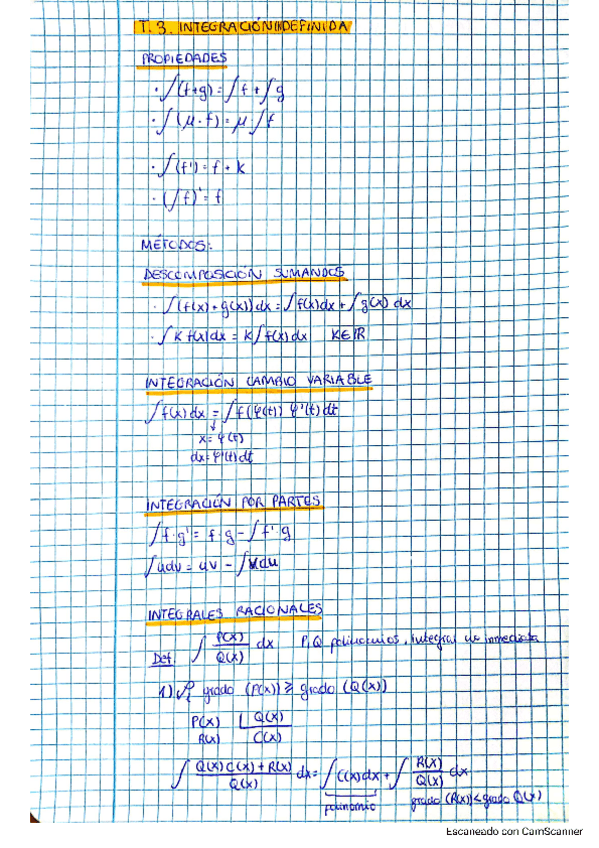 T. 3. INTEGRACIÓN INDEFINIDA
PROPIEDADES
· ∫(f+g) = ∫f + ∫g
· ∫(μ·f) = μ·∫f
· ∫(f') = f + k
· (∫f)' = f
MÉTODOS:
DESCOMPOSICIÓN SUMANDOS
· ∫(f(x)+g(x))dx = ∫f(x)dx + ∫g(x)dx
· ∫K f(x)dx = K∫f(x)dx K∈ℝ
INTEGRACIÓN CAMBIO VARIABLE
∫f(x)dx = ∫f(φ(t)) φ'(t)dt
↓
x = φ(t)
dx = φ'(t)dt
INTEGRACIÓN POR PARTES
∫f·g' = f·g - ∫f'·g
∫udv = uv - ∫vdu
INTEGRALES RACIONALES
Def: ∫ P(x)/Q(x) dx P,Q polinomios, integral no inmediata
1) Si grado (P(x)) ≥ grado (Q(x))
P(x) | Q(x)
R(x) C(x)
∫ Q(x)C(x)+R(x)/Q(x) dx = ∫C(x)dx + ∫ R(x)/Q(x) dx
polinomio grado (R(x)) < grado Q(x)
Escaneado con CamScanner